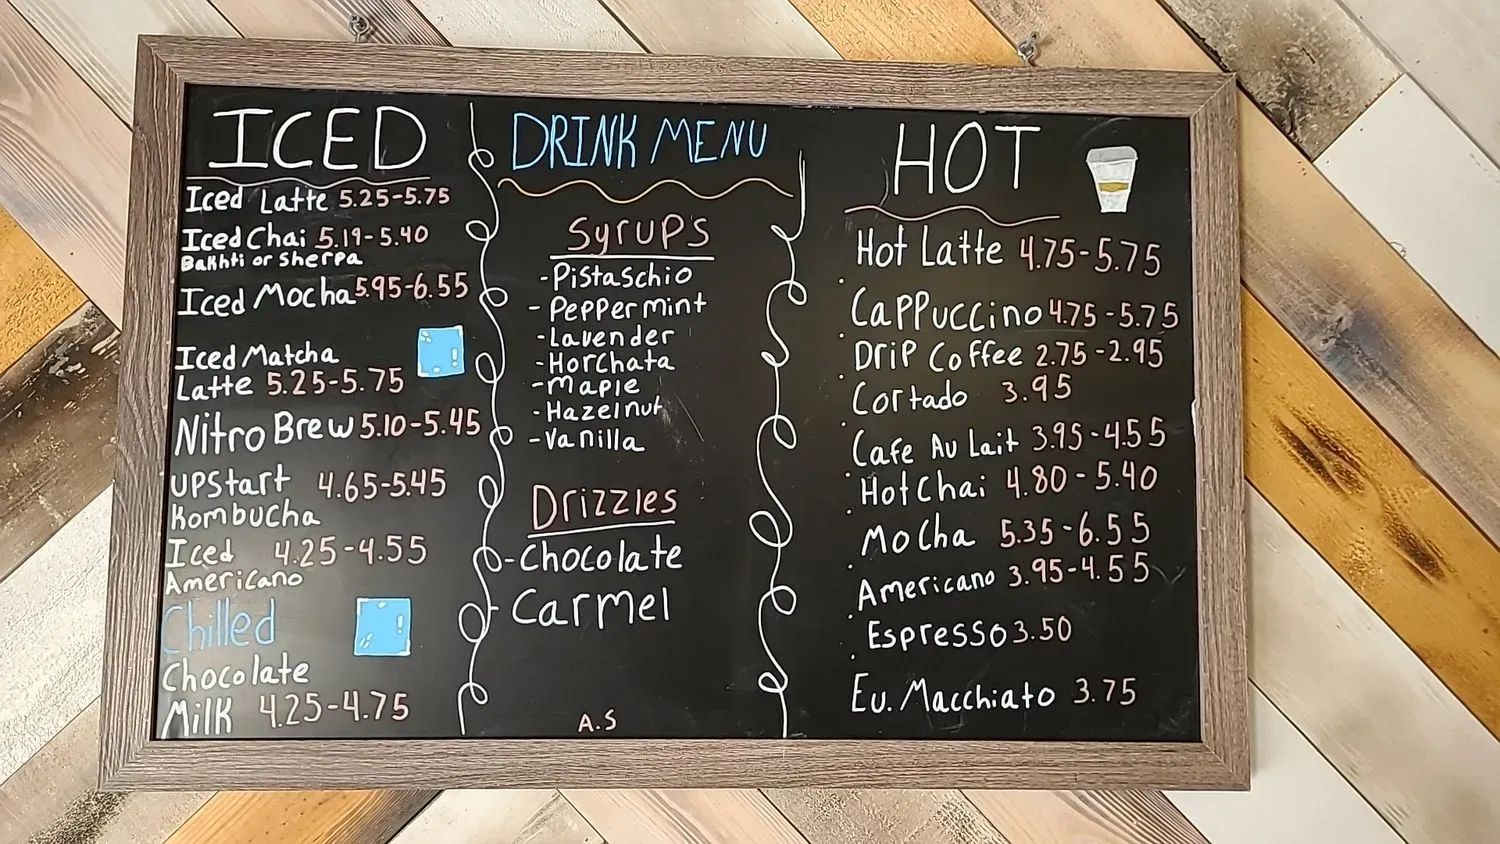 ICED
Iced Latte 5.25-5.75
Iced Chai 5.19-5.40
Bakhti or Sherpa
Iced Mocha 5.95-6.55
Iced Matcha
Latte 5.25-5.75
Nitro Brew 5.10-5.45
UPStart 4.65-5.45
Kombucha
Iced 4.25-4.55
Americano
Chilled
Chocolate
Milk 4.25-4.75
DRINK MENU
Syrups
-Pistaschio
-Peppermint
-Lavender
-Horchata
-Maple
-Hazelnut
-Vanilla
Drizzles
-Chocolate
- Carmel
A.S
HOT
Hot Latte 4.75-5.75
Cappuccino 4.75-5.75
Drip Coffee 2.75-2.95
Cortado 3.95
Cafe Au Lait 3.95-4.55
Hot Chai 4.80-5.40
Mocha 5.35-6.55
Americano 3.95-4.55
Espresso 3.50
Eu. Macchiato 3.75